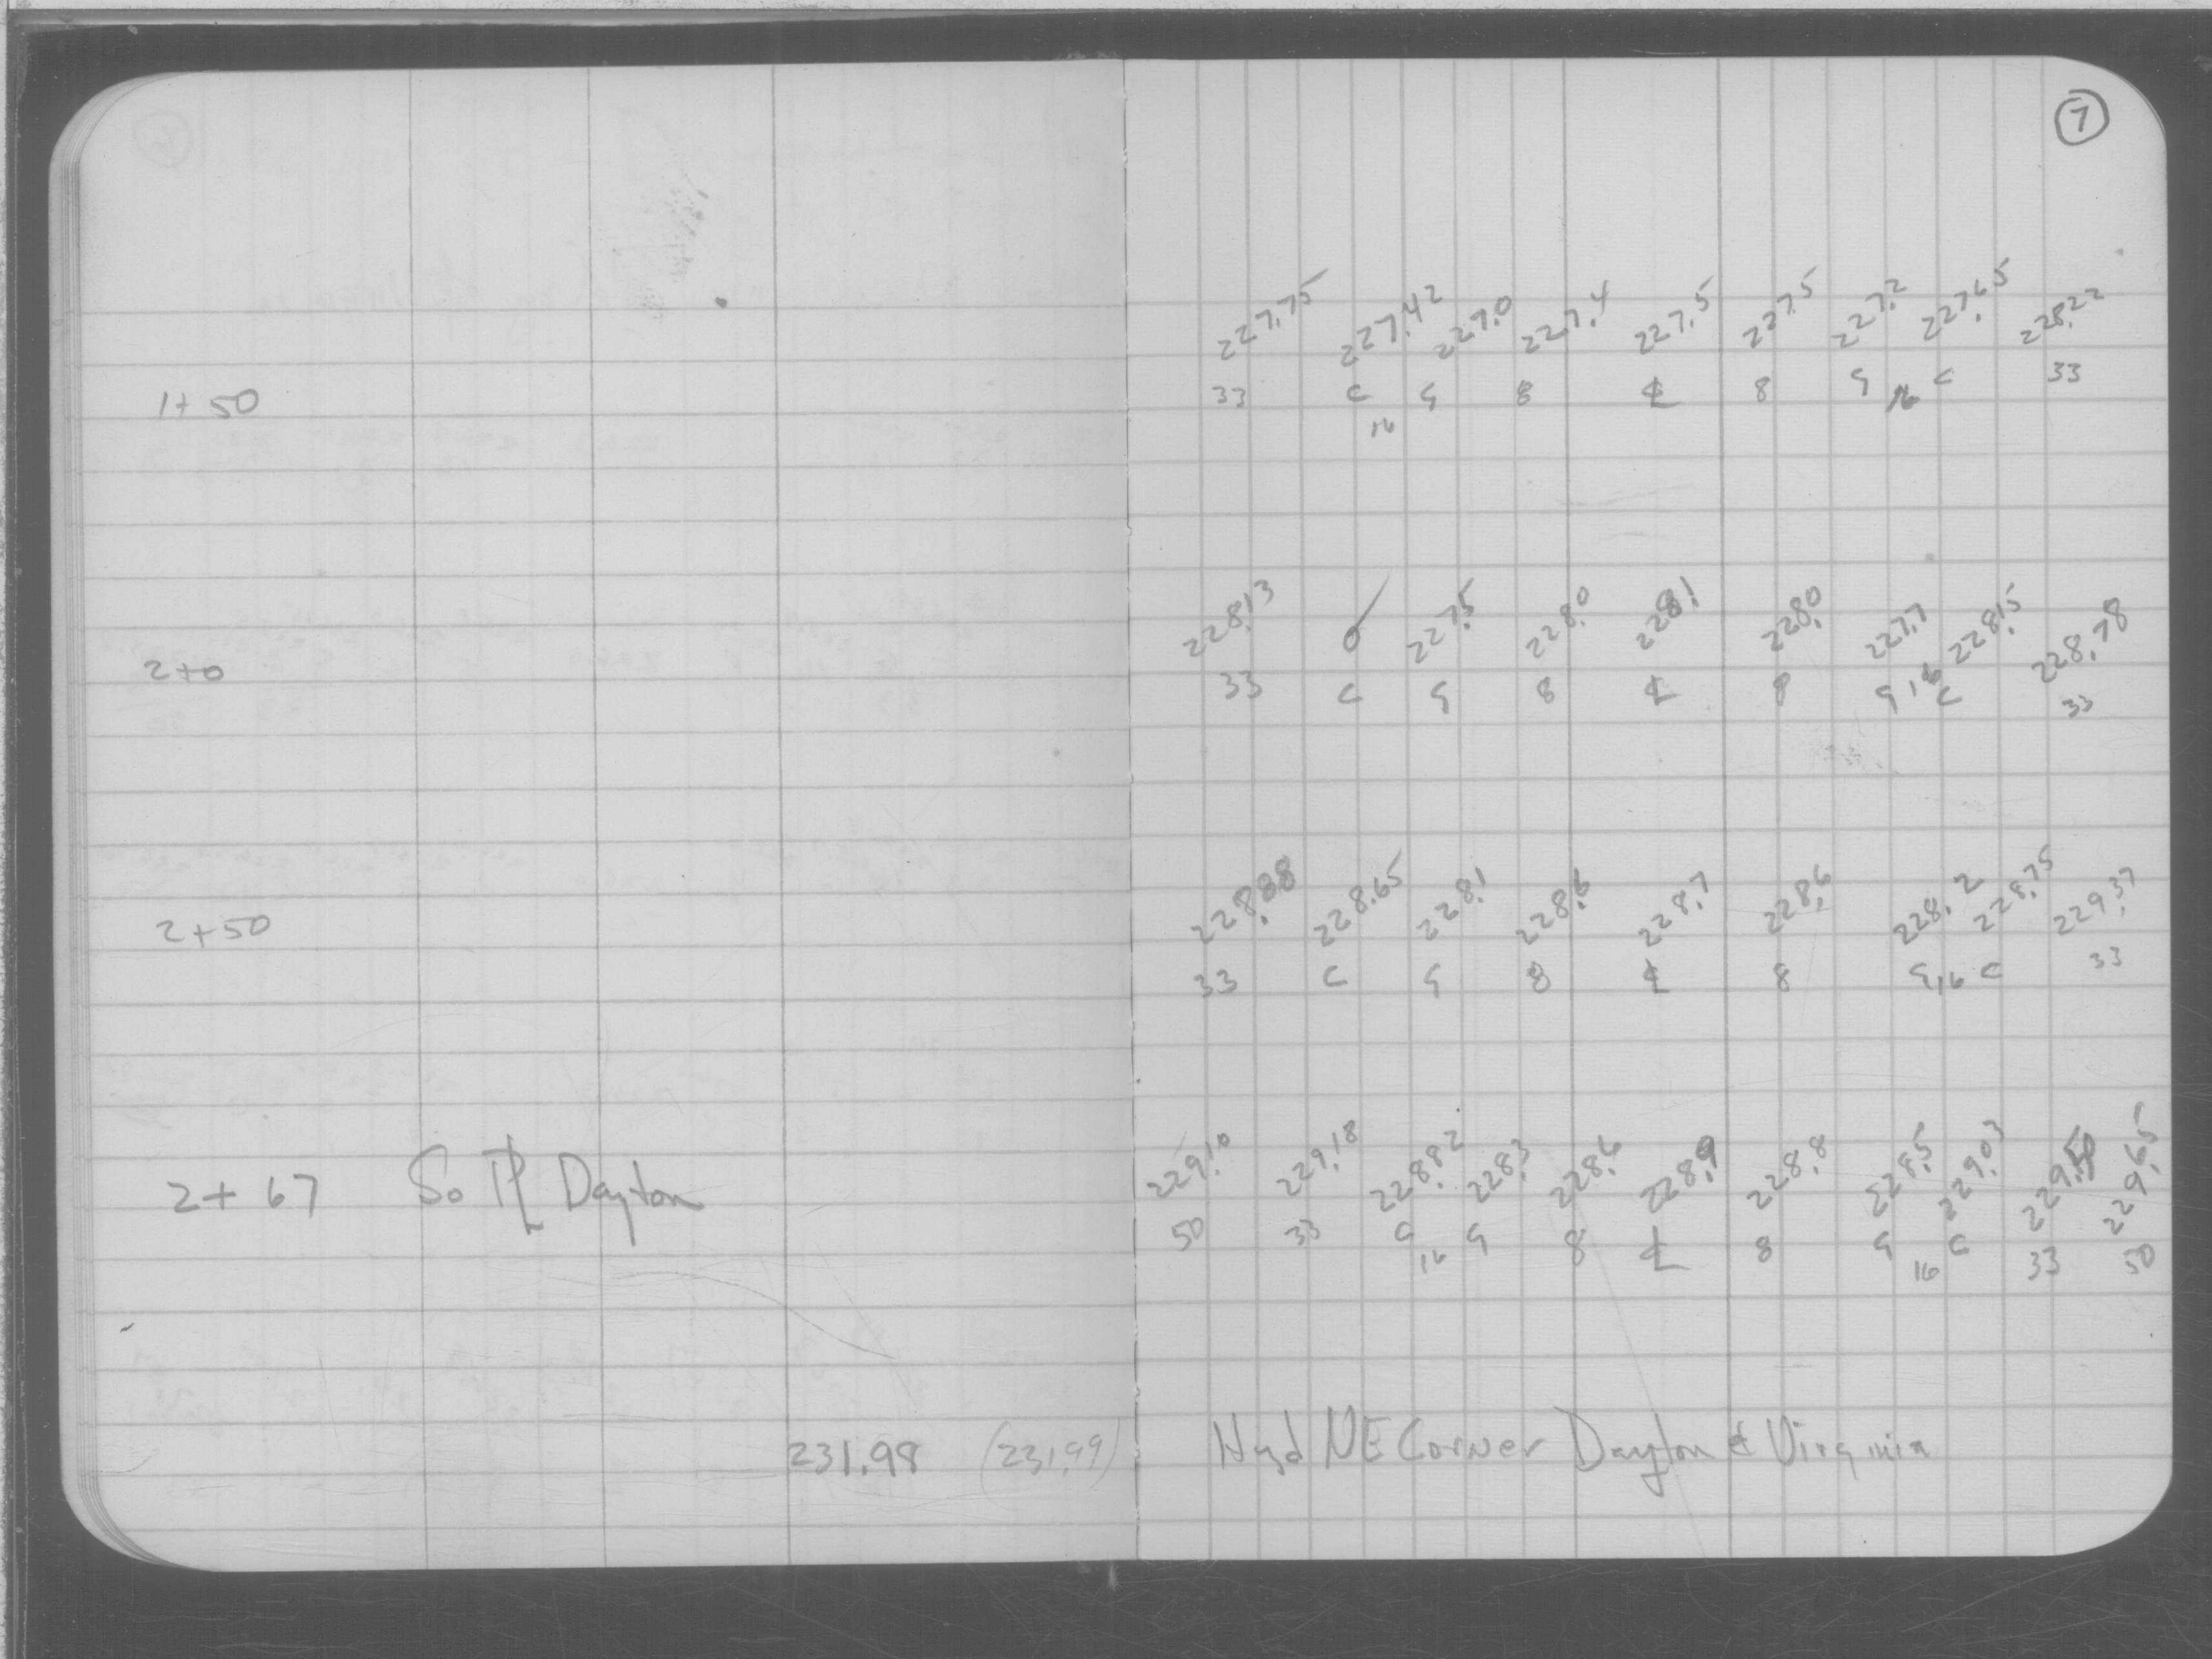 7
227.75 227.42 227.0 227.4 227.5 227.5 227.2 227.65 228.22
1+50 33 C G 8 ℄ 8 G 16 C 33
16
228.13 0 227.5 228.0 228.1 228.0 227.7 228.15 228.78
2+0 33 C G 8 ℄ 8 G 16 C 33
228.88 228.65 228.1 228.6 228.7 228.6 228.2 228.75 229.37
2+50 33 C G 8 ℄ 8 G 16 C 33
229.10 229.18 228.82 228.3 228.6 228.9 228.8 228.5 229.03 229.50 229.65
2+67 So PL Dayton 50 33 C 16 G 8 ℄ 8 G 16 C 33 50
231.98 (231.99) Hyd NE Corner Dayton & Virginia